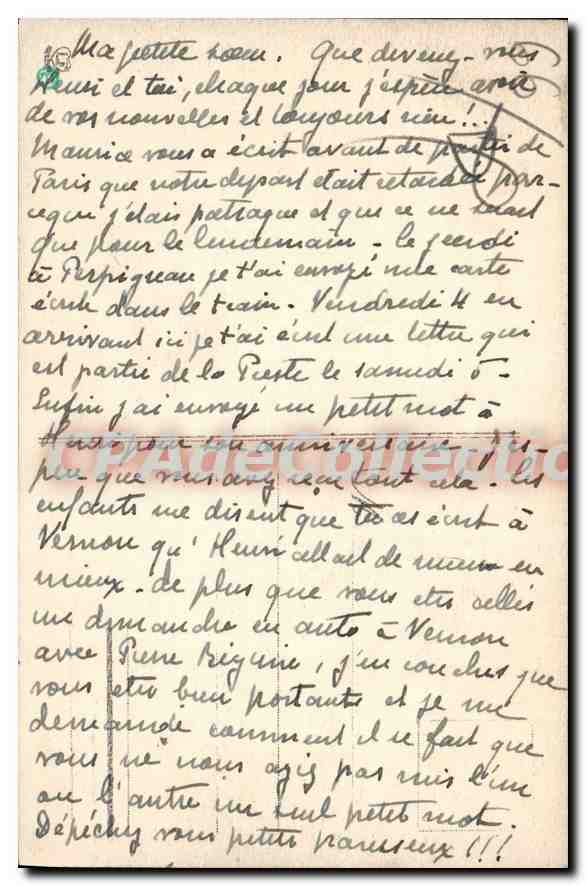 Ma petite soeur. Que devenez-vous
Henri et toi, chaque jour j'espère avoir
de vos nouvelles et toujours rien!..
Maurice vous a écrit avant de partir de
Paris que notre depart etait retardé par-
ceque j'étais patraque et que ce ne serait
que pour le lendemain - le jeudi
à Perpignan je t'ai envoyé une carte
écrite dans le train - Vendredi 4 en
arrivant ici je t'ai écrit une lettre qui
est partie de la Preste le samedi 5 -
Enfin j'ai envoyé un petit mot à
Henri pour son anniversaire j'es-
père que vous avez reçu tout cela - les
enfants me disent que tu as écrit à
Vernon qu'Henri allait de mieux en
mieux - de plus que vous etes allés
un dimanche en auto à Vernon
avec Pierre, j'en conclus que
vous etes bien portants et je me
demande comment il se fait que
vous ne nous ayez pas mis l'un
ou l'autre un seul petit mot.
Dépéchez vous petits paresseux!!!
CPAdeCollection